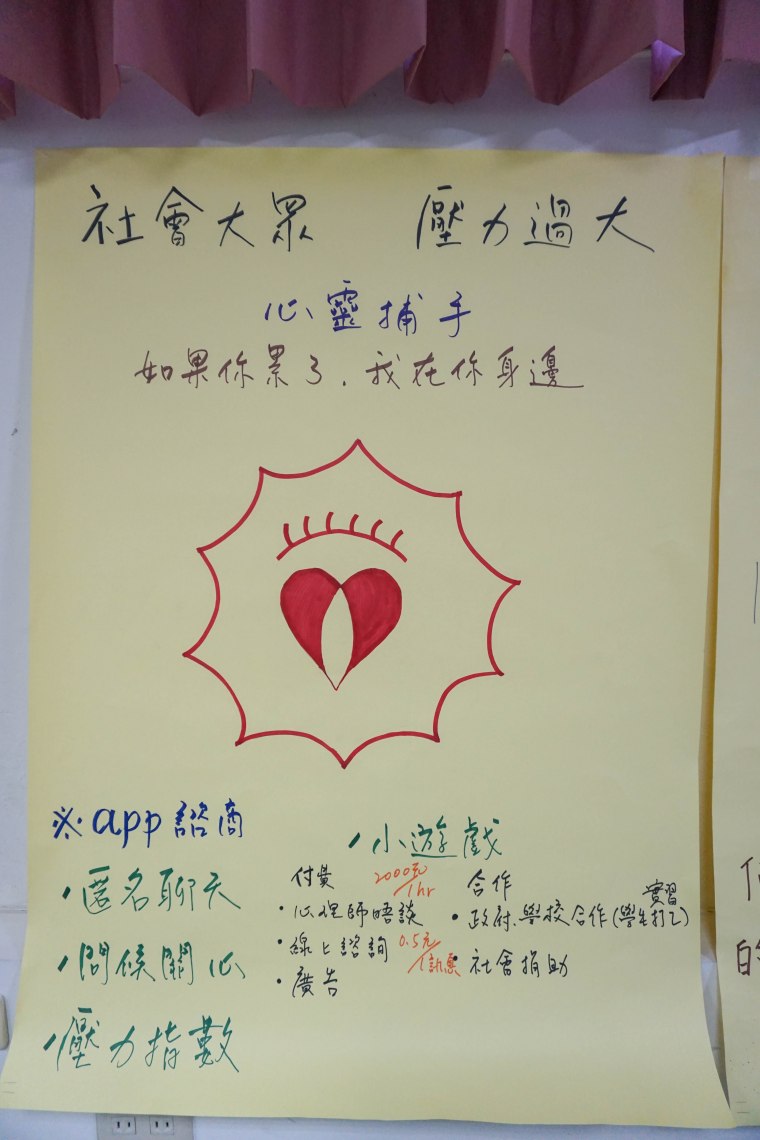 社會大眾 壓力過大
心靈捕手
如果你累了，我在你身邊
※app諮商
小遊戲
匿名聊天
問候關心
壓力指數
付費 2000元/1hr
• 心理師晤談
• 線上諮詢 0.5元/1訊息
• 廣告
合作 實習
• 政府、學校合作(學生打工)
• 社會捐助
的